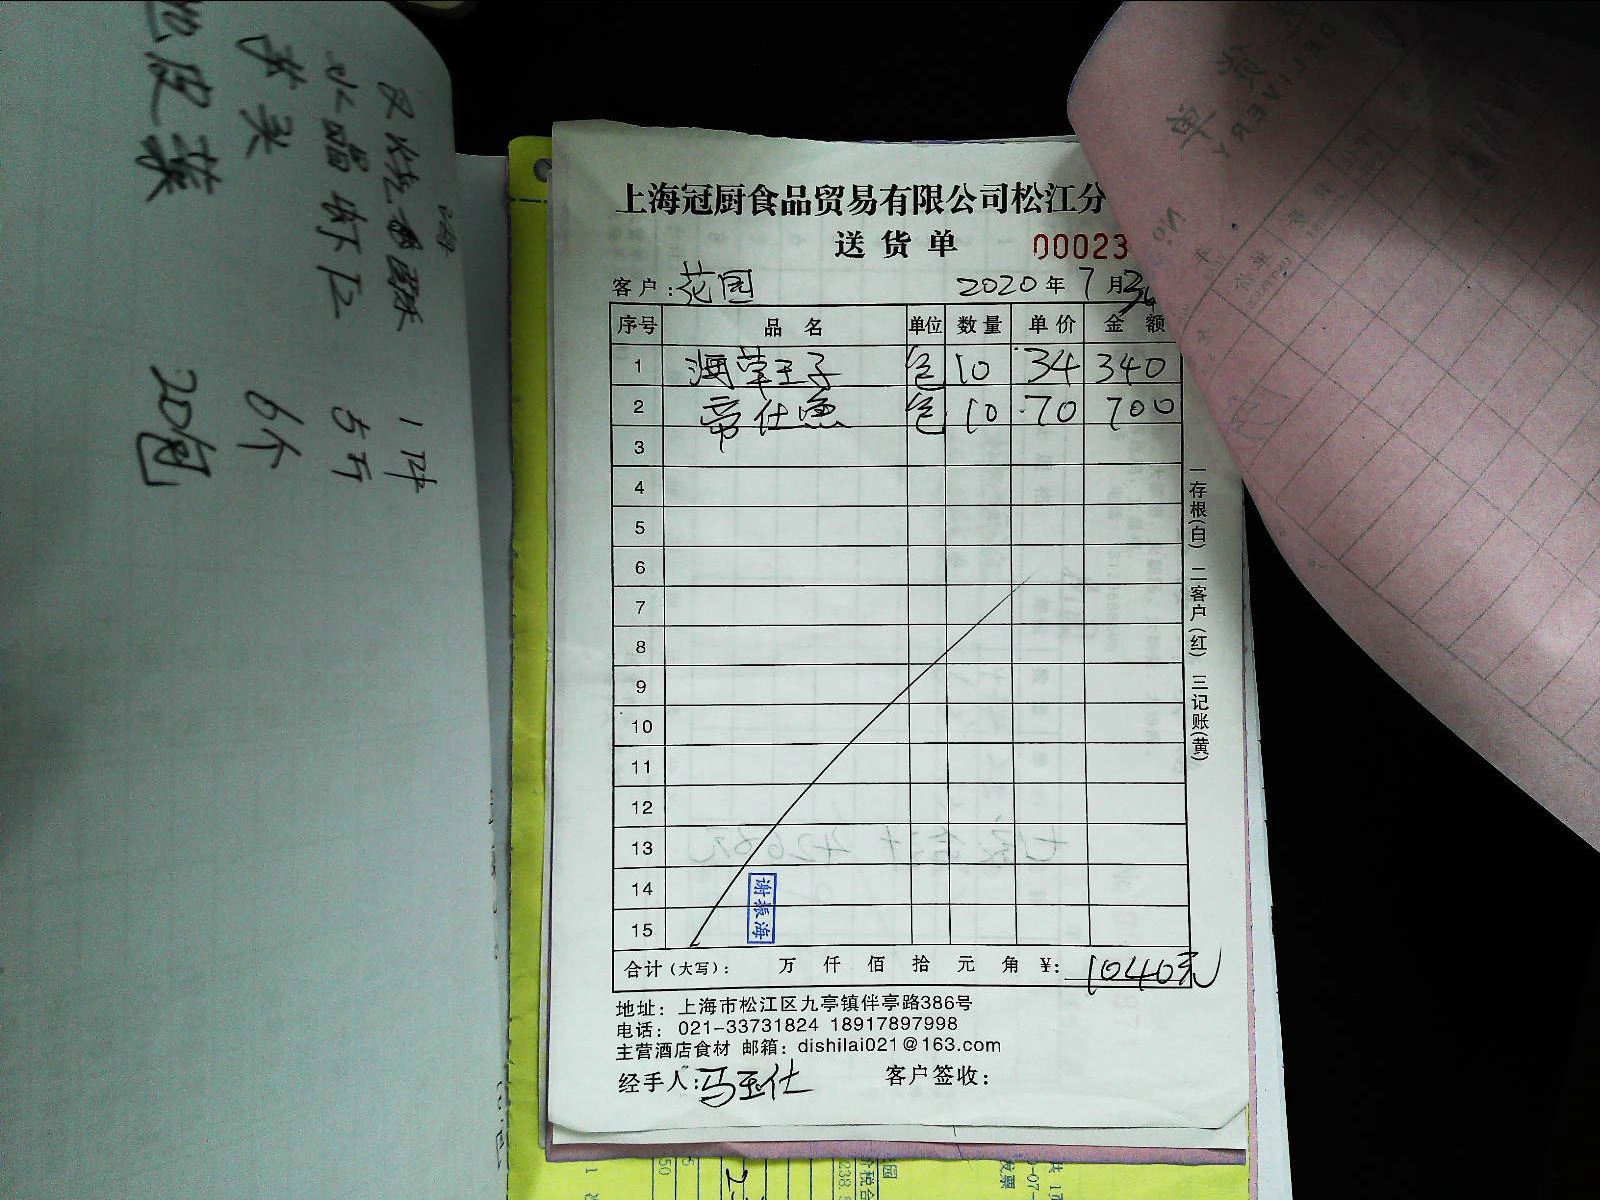 上海冠厨食品贸易有限公司松江分
送货单 00023
客户:花园 2020年7月
序号 品名 单位 数量 单价 金额
1 王子 包 10 34 340
2 帝仕鱼 包 10 70 700
3
4
5
6
7
8
9
10
11
12
13
14
15
谢振海
合计(大写): 万 仟 佰 拾 元 角 ¥: 1040元
地址: 上海市松江区九亭镇伴亭路386号
电话: 021-33731824 18917897998
主营酒店食材 邮箱: dishilai021@163.com
经手人:马玉仕 客户签收:
一存根(白) 二客户(红) 三记账(黄)
水晶虾 5斤
6个
地皮菜
DELIVERY
单